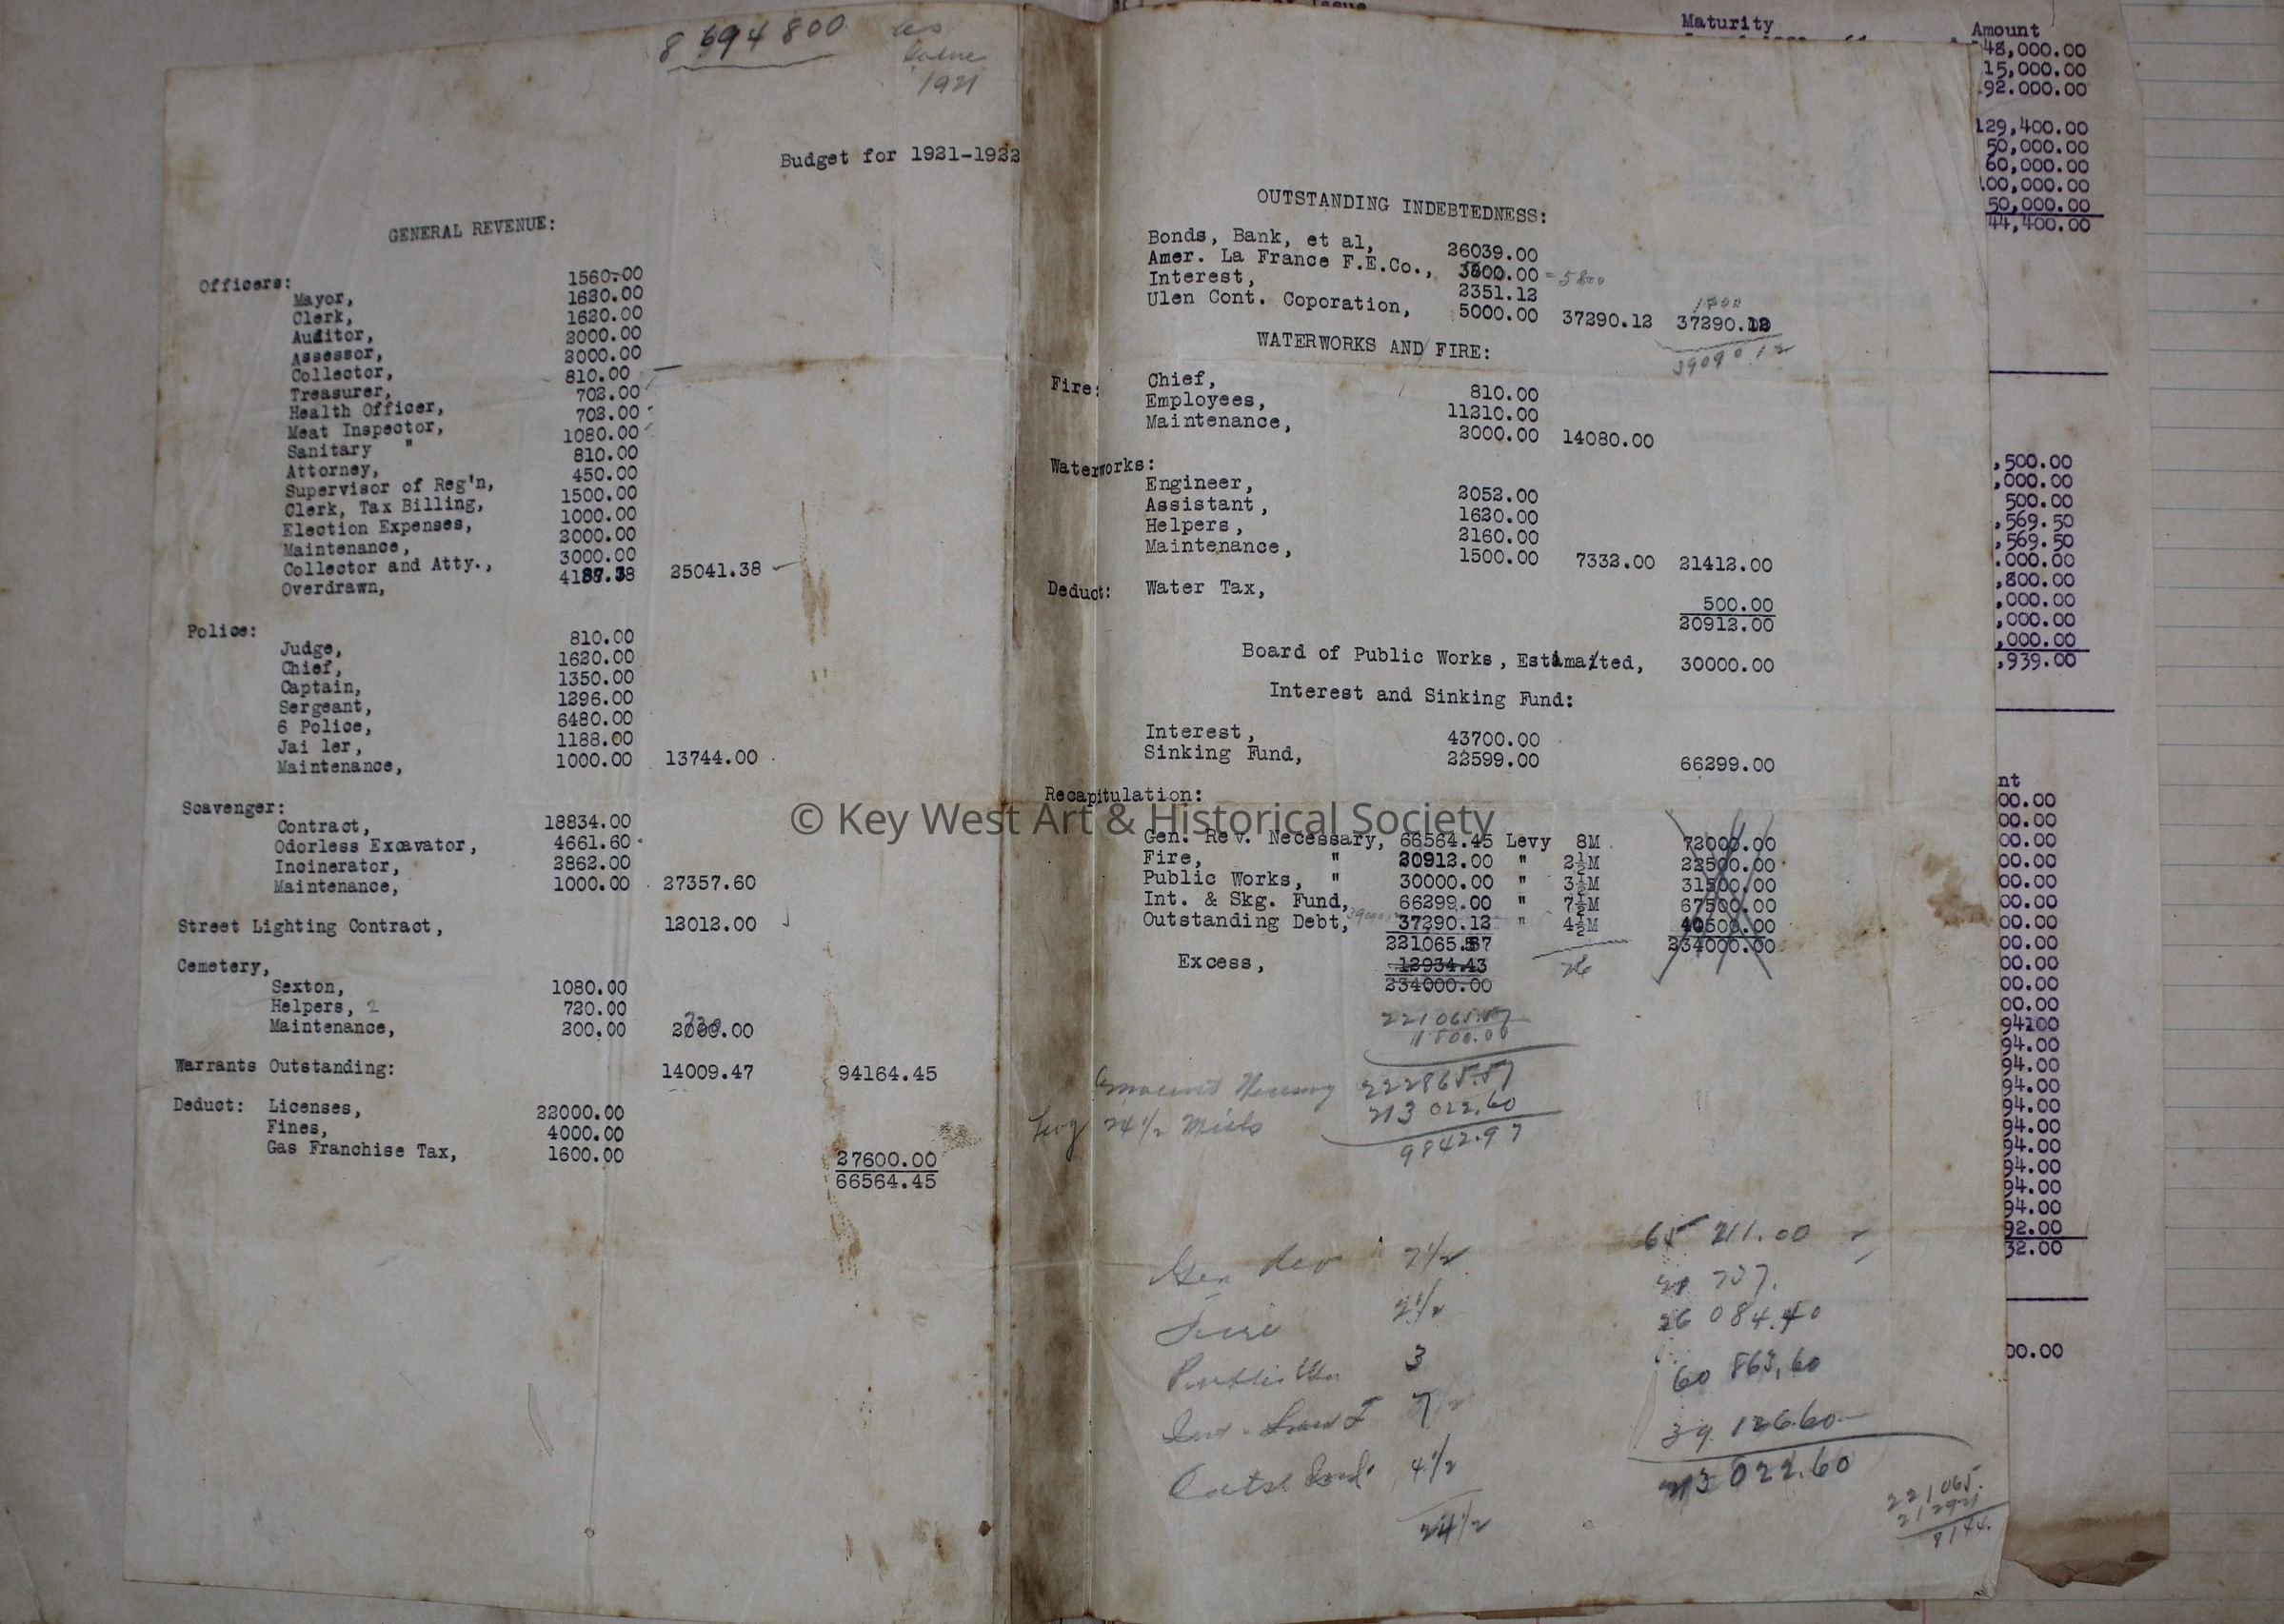 8 694 800
1921
Budget for 1921-1922
GENERAL REVENUE:
Officers:
Mayor, 1560.00
Clerk, 1620.00
Auditor, 1620.00
Assessor, 2000.00
Collector, 2000.00
Treasurer, 810.00
Health Officer, 702.00
Meat Inspector, 702.00
Sanitary " 1080.00
Attorney, 810.00
Supervisor of Reg'n, 450.00
Clerk, Tax Billing, 1500.00
Election Expenses, 1000.00
Maintenance, 2000.00
Collector and Atty., 3000.00
Overdrawn, 4187.38 25041.38
Police:
Judge, 810.00
Chief, 1620.00
Captain, 1350.00
Sergeant, 1296.00
6 Police, 6480.00
Jai ler, 1188.00
Maintenance, 1000.00 13744.00
Scavenger:
Contract, 18834.00
Odorless Excavator, 4661.60
Incinerator, 2862.00
Maintenance, 1000.00 27357.60
Street Lighting Contract, 12012.00
Cemetery,
Sexton, 1080.00
Helpers, 2 720.00
Maintenance, 200.00 2000.00
Warrants Outstanding: 14009.47 94164.45
Deduct: Licenses, 22000.00
Fines, 4000.00
Gas Franchise Tax, 1600.00 27600.00
66564.45
OUTSTANDING INDEBTEDNESS:
Bonds, Bank, et al, 26039.00
Amer. La France F.E.Co., 3800.00 = 5800
Interest, 2351.12
1800
Ulen Cont. Coporation, 5000.00 37290.12 37290.12
39090 12
WATERWORKS AND FIRE:
Fire: Chief, 810.00
Employees, 11210.00
Maintenance, 2000.00 14080.00
Waterworks:
Engineer, 2052.00
Assistant, 1620.00
Helpers, 2160.00
Maintenance, 1500.00 7332.00 21412.00
Deduct: Water Tax, 500.00
20912.00
Board of Public Works, Estimated, 30000.00
Interest and Sinking Fund:
Interest, 43700.00
Sinking Fund, 22599.00 66299.00
Recapitulation:
© Key West Art & Historical Society
Gen. Rev. Necessary, 66564.45 Levy 8M 72000.00
Fire, " 20912.00 " 2½M 22500.00
Public Works, " 30000.00 " 3½M 31500.00
Int. & Skg. Fund, 66299.00 " 7½M 67500.00
Outstanding Debt, 37290.12 " 4½M 40500.00
221065.57 234000.00
Excess, 12934.43 26
234000.00
221065.57
1800.00
Amount 222865.57
213 022.60
24 1/2 Mills
9842.97
Gen Rev 7 1/2 65 211.00
Fire 2 1/2 21 737.
Public 3 26 084.40
7 60 863.60
4 1/2 39 126.60
24 1/2 213 022.60
221065.
8144.
Maturity Amount
48,000.00
15,000.00
92.000.00
129,400.00
50,000.00
60,000.00
100,000.00
50,000.00
44,400.00
,500.00
,000.00
500.00
,569.50
,569.50
.000.00
,800.00
,000.00
,000.00
,000.00
,939.00
nt
00.00
00.00
00.00
00.00
00.00
00.00
00.00
00.00
00.00
00.00
00.00
94100
94.00
94.00
94.00
94.00
94.00
94.00
94.00
94.00
94.00
92.00
32.00
00.00